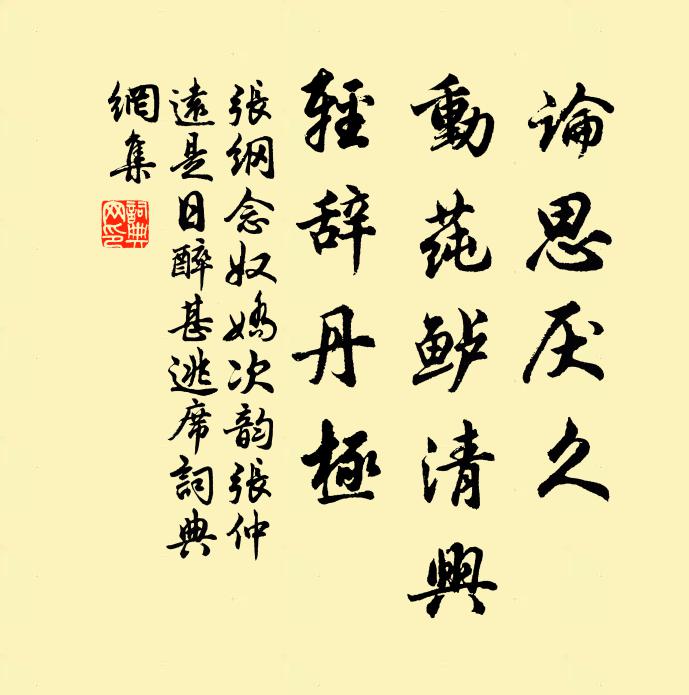 論思厌久
動莼鲈清興
輕辞丹極
張綱念奴嬌次韵張仲
遠是日醉甚逃席詞典
網集
詞典
网印